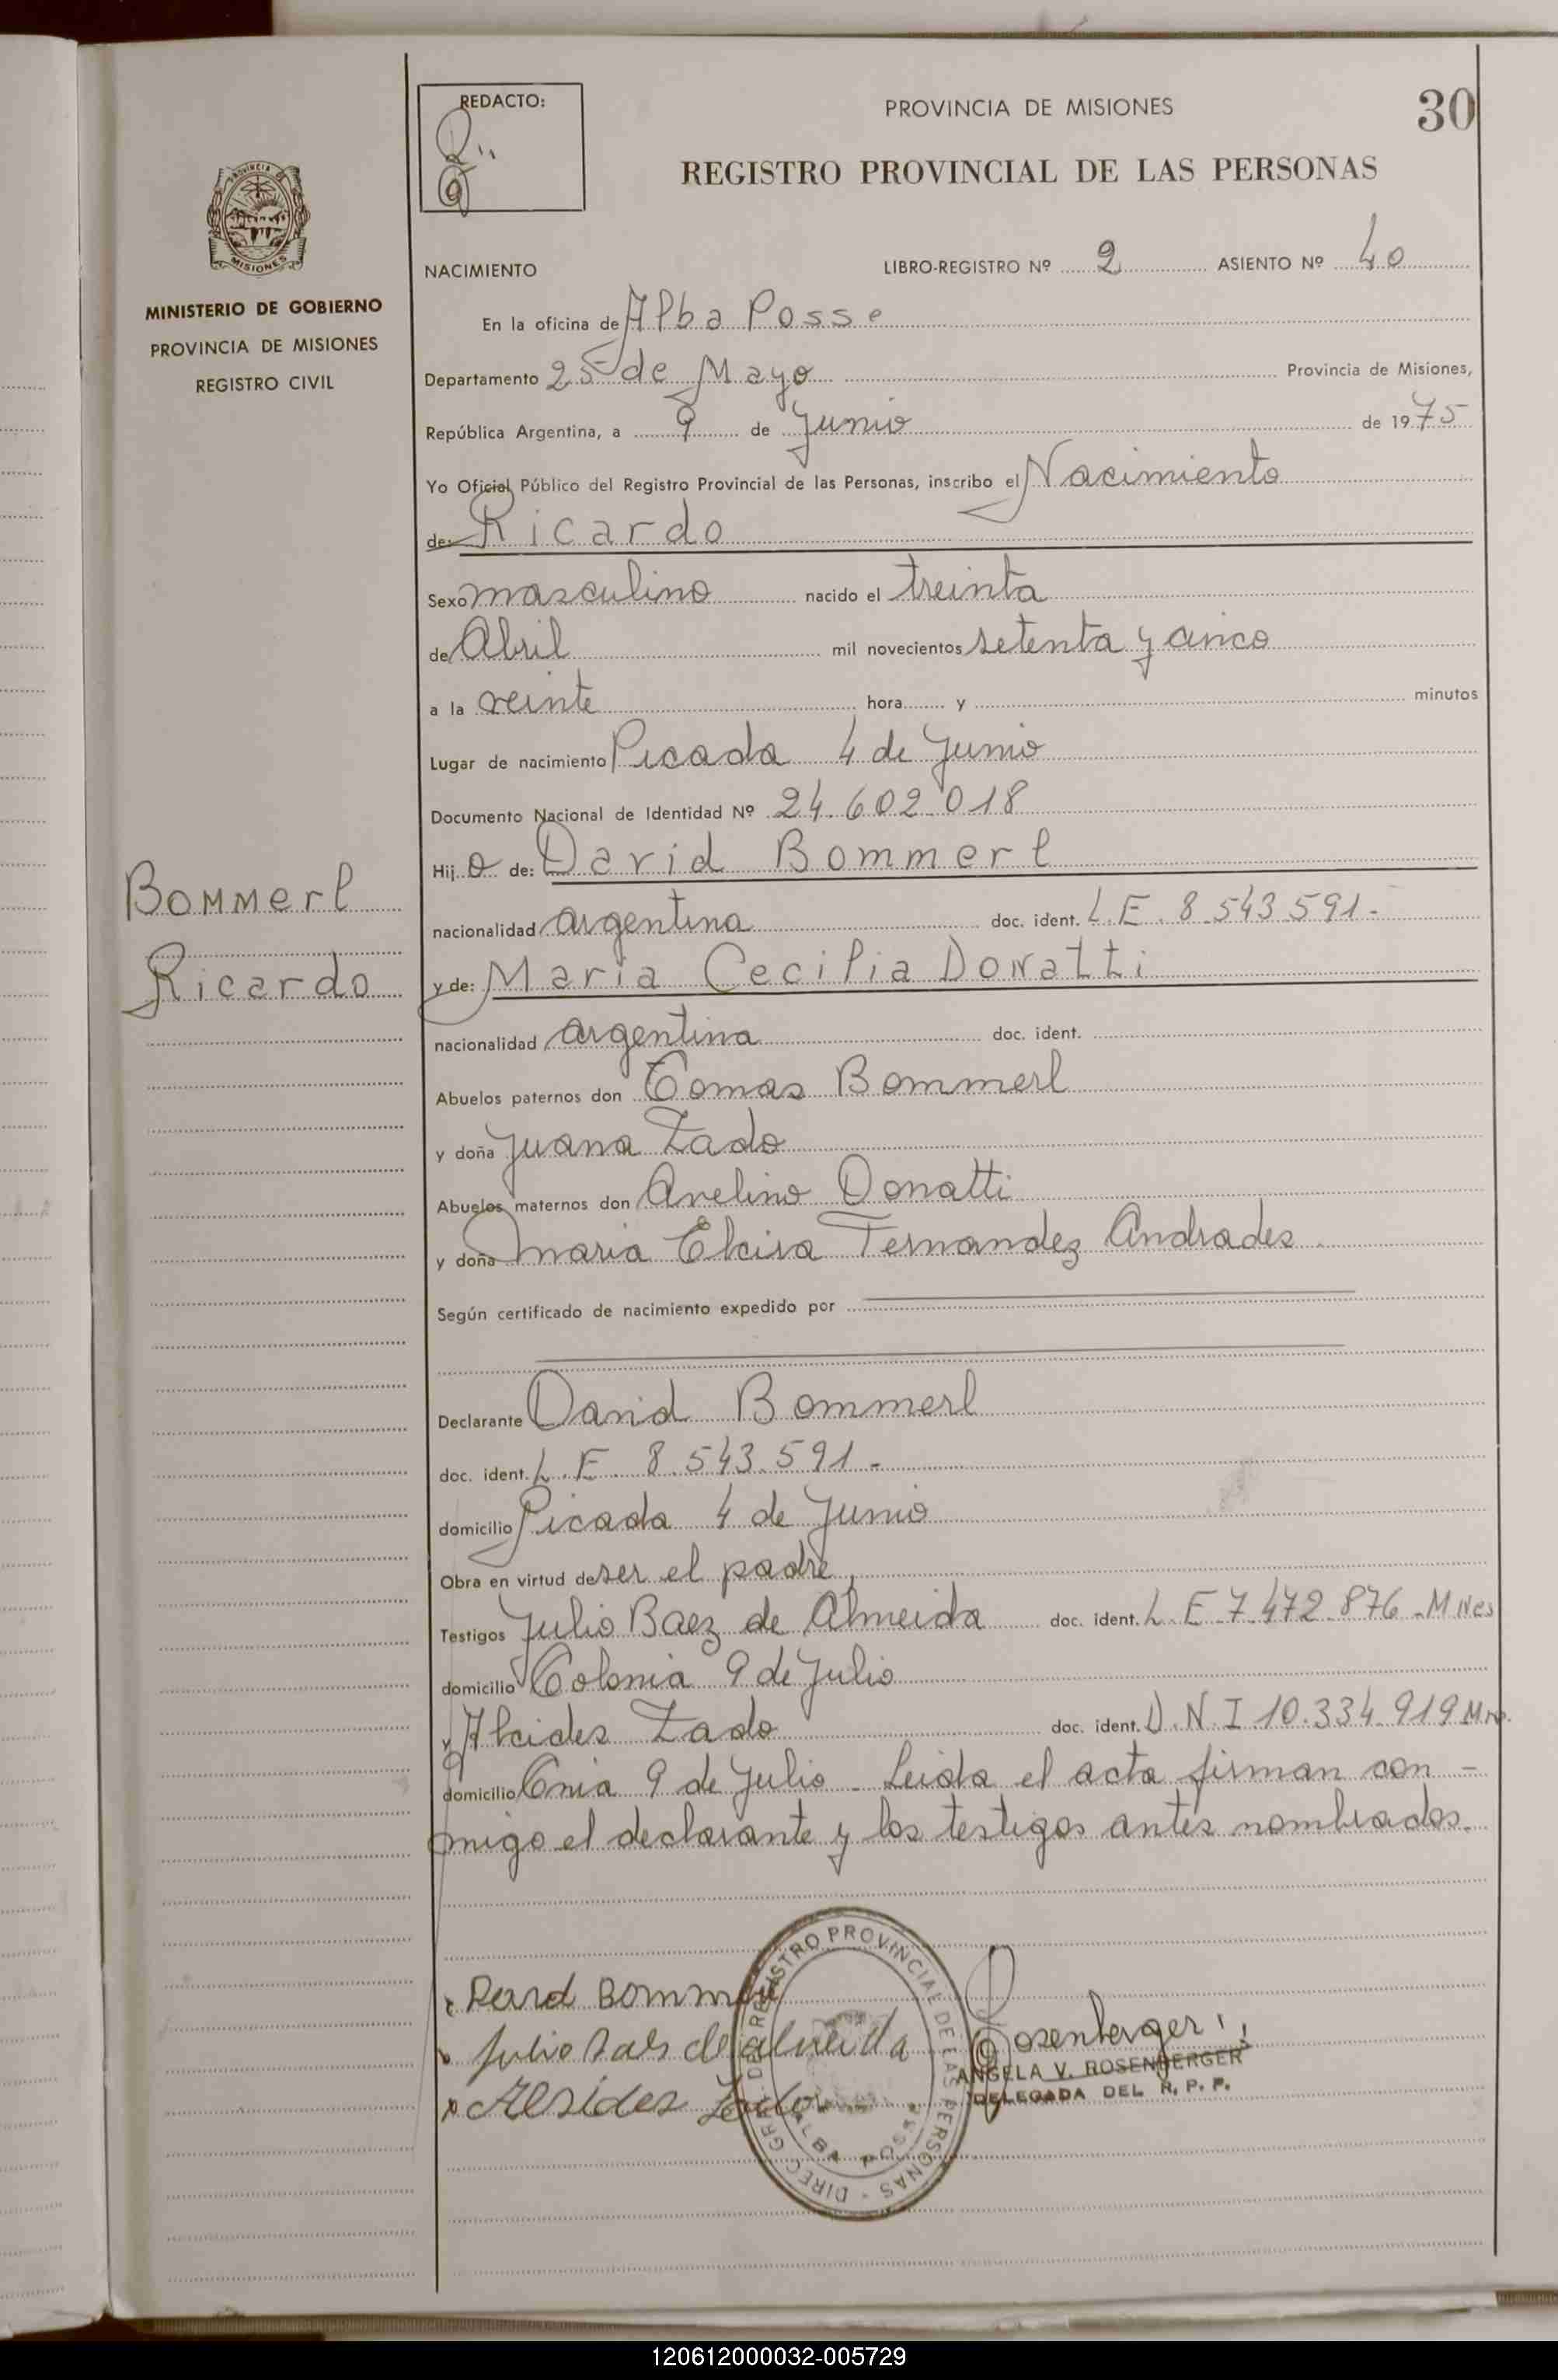 REDACTO:
PROVINCIA DE MISIONES
30
REGISTRO PROVINCIAL DE LAS PERSONAS
PROVINCIA DE
MISIONES
MINISTERIO DE GOBIERNO
PROVINCIA DE MISIONES
REGISTRO CIVIL
NACIMIENTO LIBRO-REGISTRO Nº 2 ASIENTO Nº 40
En la oficina de Alba Posse
Departamento 25 de Mayo Provincia de Misiones,
República Argentina, a 9 de Junio de 1975
Yo Oficial Público del Registro Provincial de las Personas, inscribo el Nacimiento
de: Ricardo
Sexo masculino nacido el treinta
de Abril mil novecientos setenta y cinco
a la veinte hora y minutos
Lugar de nacimiento Picada 4 de Junio
Documento Nacional de Identidad Nº 24.602.018
Hijo de: David Bommerl
Bommerl
nacionalidad argentina doc. ident. L.E. 8.543.591.-
Ricardo
y de: Maria Cecilia Donatti
nacionalidad argentina doc. ident.
Abuelos paternos don Tomas Bommerl
y doña Juana Zado
Abuelos maternos don Avelino Donatti
y doña Maria Elcira Fernandez Andrades.
Según certificado de nacimiento expedido por
Declarante David Bommerl
doc. ident. L.E. 8.543.591.-
domicilio Picada 4 de Junio
Obra en virtud de ser el padre,
Testigos Julio Baez de Almeida doc. ident. L.E 7.472.876 - Mnes
domicilio Colonia 9 de Julio
y Alcides Zado doc. ident. D.N.I 10.334.919 Mns.
domicilio Cnia 9 de Julio - Leida el acta firman con -
migo el declarante y los testigos antes nombrados.
DIREC. GRAL. DEL REGISTRO PROVINCIAL DE LAS PERSONAS -
ALBA POSSE
Julio de almeida
Alsides Zado
Rosenberger
ANGELA V. ROSENBERGER
DELEGADA DEL R. P. P.
120612000032-005729